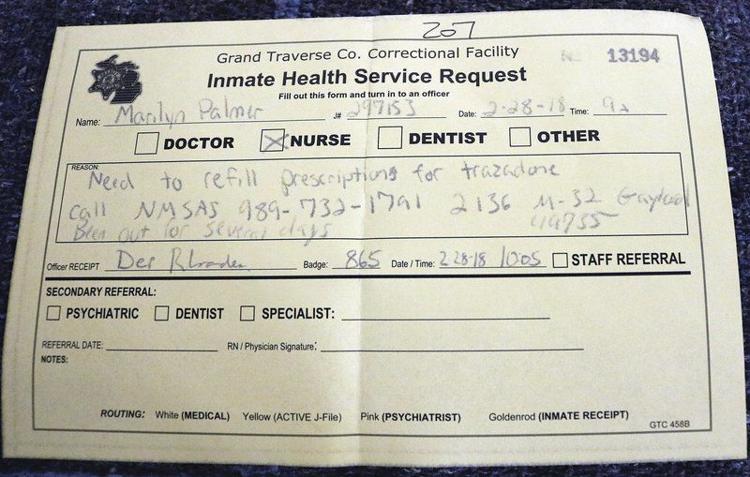 207
Grand Traverse Co. Correctional Facility
No 13194
Inmate Health Service Request
Fill out this form and turn in to an officer
Name: Marilyn Palmer J# 297153 Date: 2-28-18 Time: 9a
DOCTOR NURSE DENTIST OTHER
REASON:
Need to refill prescriptions for trazadone
call NMSAS 989-732-1791 2136 M-32 Gaylord
49735
Been out for several days
Officer RECEIPT Dep Badge: 865 Date / Time: 2-28-18 1005 STAFF REFERRAL
SECONDARY REFERRAL:
PSYCHIATRIC DENTIST SPECIALIST:
REFERRAL DATE: RN / Physician Signature:
NOTES:
ROUTING: White (MEDICAL) Yellow (ACTIVE J-File) Pink (PSYCHIATRIST) Goldenrod (INMATE RECEIPT)
GTC 458B